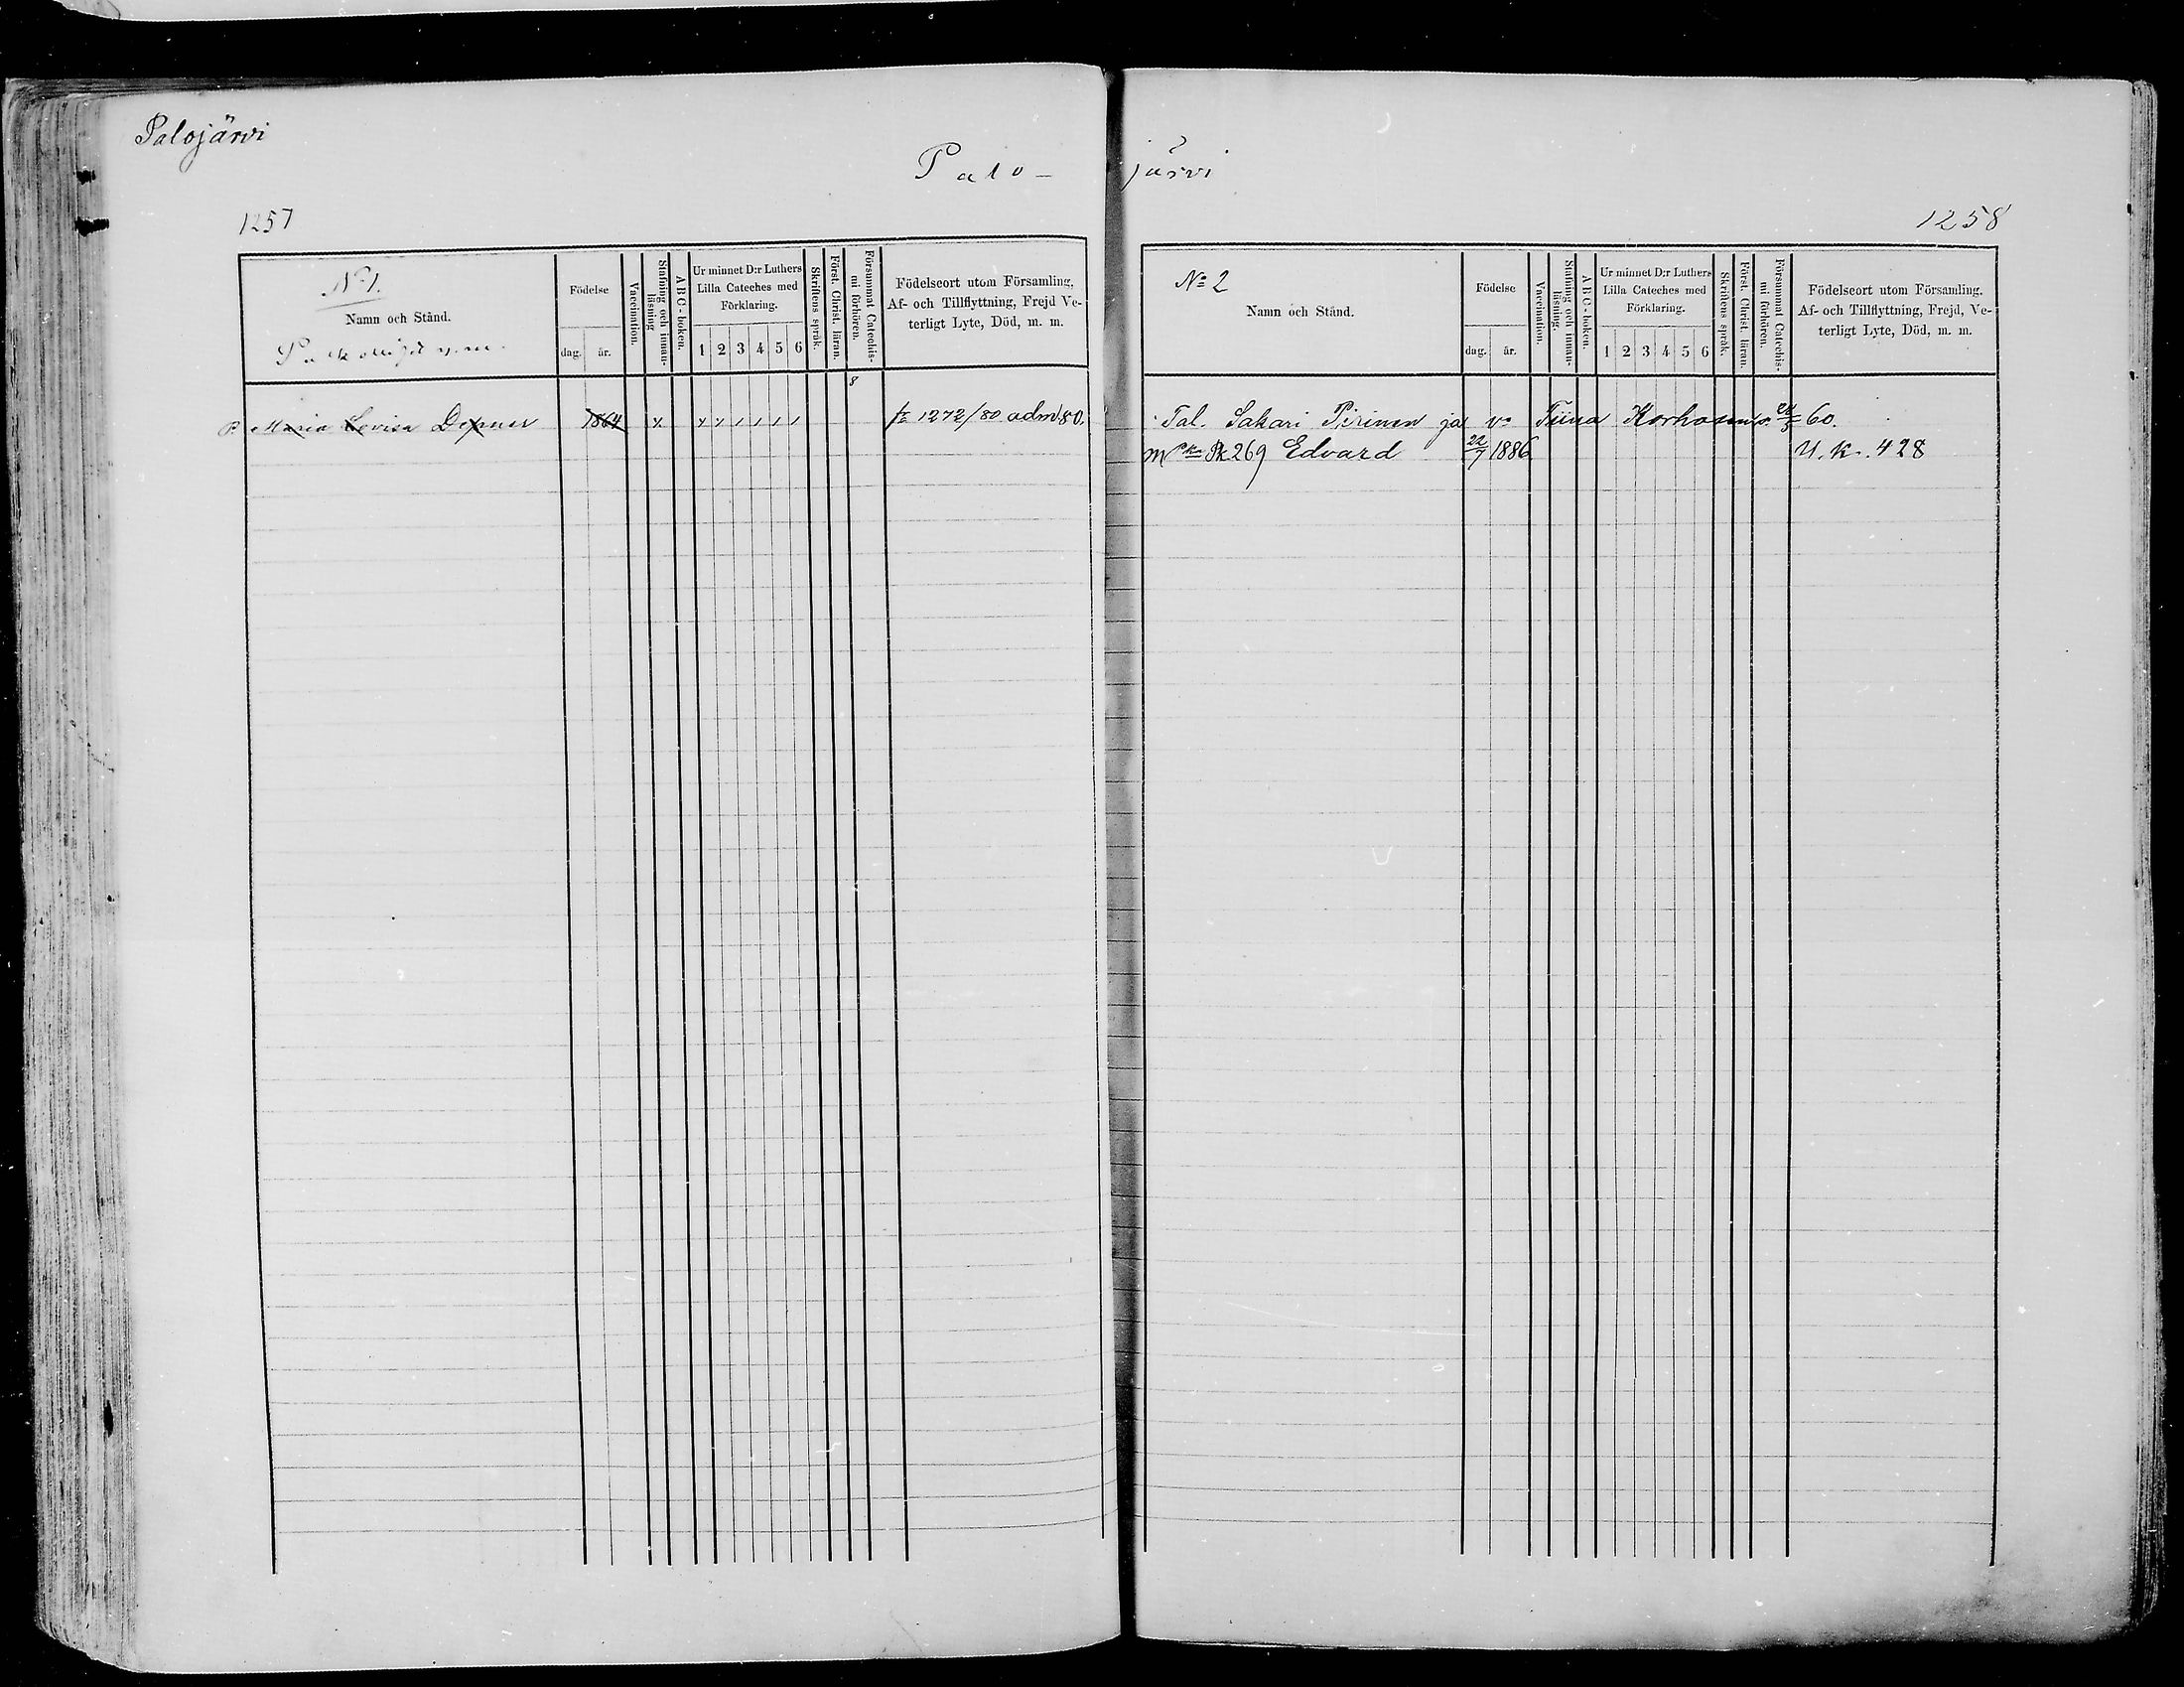 Palojärvi
Palo-
järvi
1257
1258
No 1.
Namn och Stånd.
Födelse
dag. år.
Vaccination.
Stafning och innan-läsning
ABC-boken.
Ur minnet D:r Luthers
Lilla Cateches med
Förklaring.
1 2 3 4 5 6
Skriftens språk.
Först. Christ. läran.
Försummat Catechis-mi förhören.
Födelseort utom Församling,
Af- och Tillflyttning, Frejd Ve-
terligt Lyte, Död, m. m.
8
P. Maria Lovisa 1864 x x x / / / / fr 1272/80 adm 80.
No 2
Namn och Stånd.
Födelse
dag. år.
Vaccination.
Stafning och innan-läsning.
ABC-boken.
Ur minnet D:r Luthers
Lilla Cateches med
Förklaring.
1 2 3 4 5 6
Skriftens språk.
Först. Christ. läran.
Försummat Catechis-mi förhören.
Födelseort utom Församling.
Af- och Tillflyttning, Frejd, Ve-
terligt Lyte, Död, m. m.
Tal. Sakari Pirinen ja vo Tiina Korhonen 60.
m Pk 269 Edvard 22/7 1886 U. k. 428